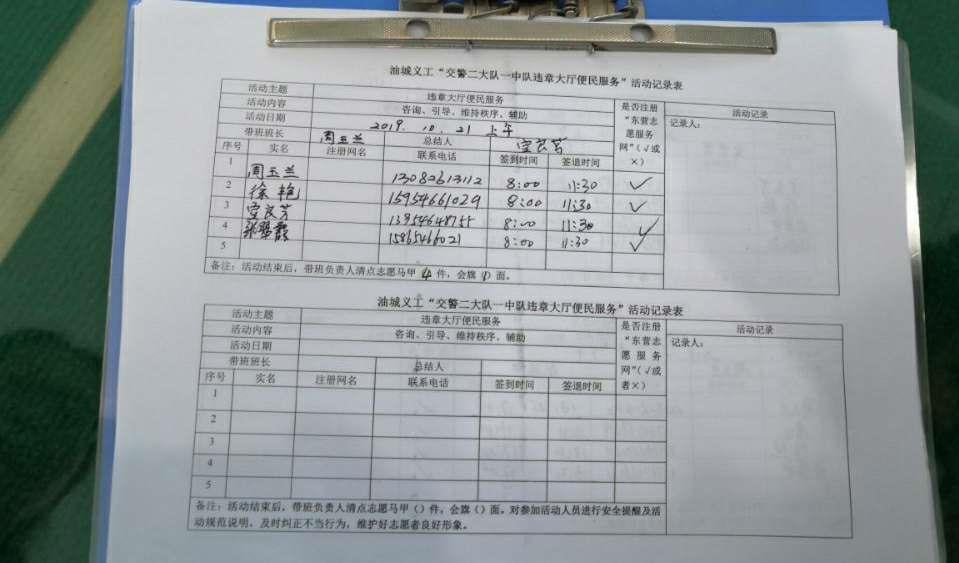 油城义工“交警二大队一中队违章大厅便民服务”活动记录表
活动主题 违章大厅便民服务 是否注册“东营志愿服务网”(√或×) 活动记录
活动内容 咨询、引导、维持秩序、辅助 记录人:
活动日期 2019. 10. 21 上午
带班班长 周玉兰 总结人
序号 实名 注册网名 联系电话 签到时间 签退时间
1 周玉兰 13082613112 8:00 11:30 √
2 徐艳 15954661029 8:00 11:30 √
3 8:00 11:30 √
4 15865466021 8:00 11:30 √
5
备注:活动结束后,带班负责人清点志愿马甲(4)件,会旗(1)面。
油城义工“交警二大队一中队违章大厅便民服务”活动记录表
活动主题 违章大厅便民服务 是否注册“东营志愿服务网”(√或者×) 活动记录
活动内容 咨询、引导、维持秩序、辅助 记录人:
活动日期
带班班长 总结人
序号 实名 注册网名 联系电话 签到时间 签退时间
1
2
3
4
5
备注:活动结束后,带班负责人清点志愿马甲()件,会旗()面。对参加活动人员进行安全提醒及活
动规范说明,及时纠正不当行为,维护好志愿者良好形象。